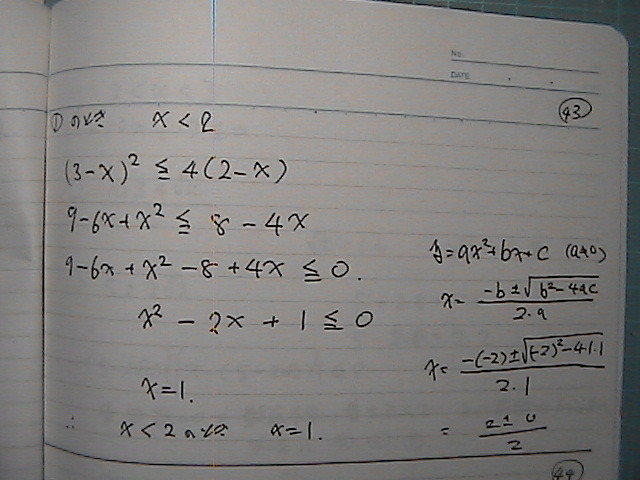 No.
DATE
㊸
① のとき x < 2
(3-x)² ≦ 4(2-x)
9-6x+x² ≦ 8-4x
9-6x+x²-8+4x ≦ 0.
x²-2x+1 ≦ 0
x=1.
∴ x<2 のとき x=1.
y=ax²+bx+c (a≠0)
x= -b±√b²-4ac / 2·a
x= -(-2)±√(-2)²-4·1·1 / 2·1
= 2±0 / 2
㊹